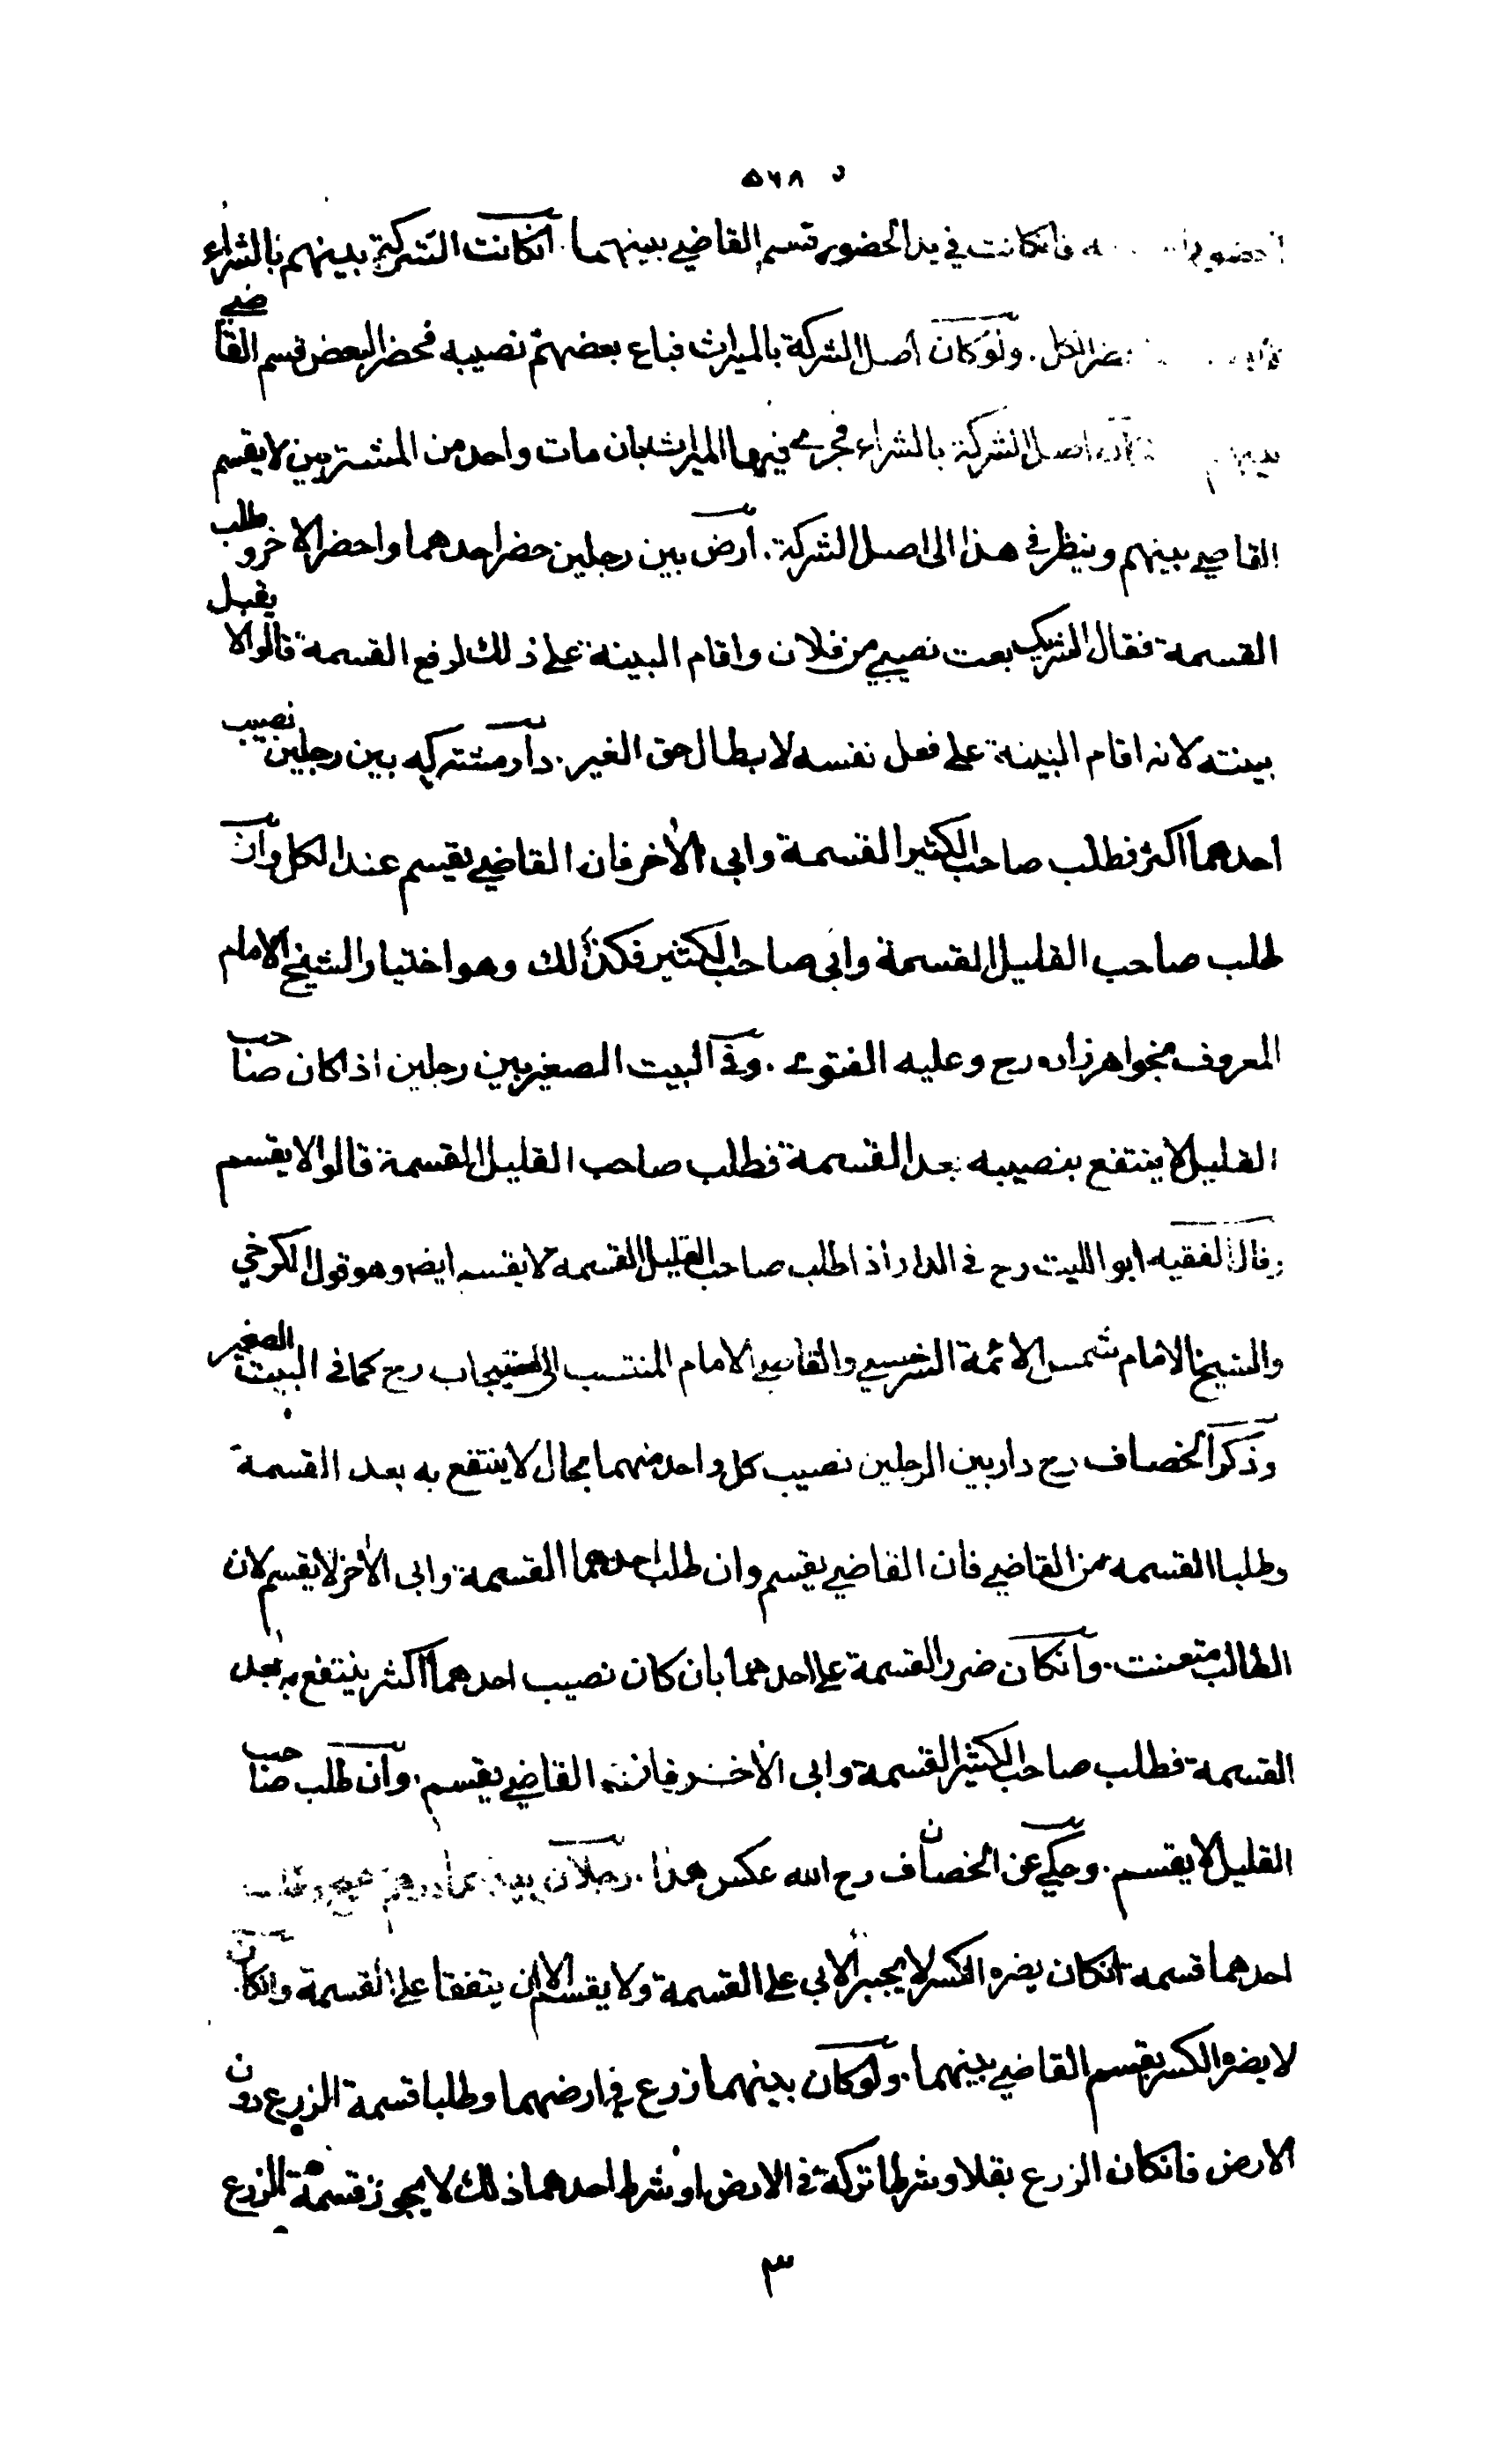 ٥٦٨
فانكانت في يد الحضور قسم القاضي بينهما . انكانت الشركة بينهم بالشراء
الكل . ولو كان اصل الشركة بالميراث فباع بعضهم نصيبه فحضر البعض قسم القاضي
بينهم اصل الشركة بالشراء فجرى فيها الميراث بان مات واحد من المشتريين لا يقسم
القاضي بينهم وينظر في هذا الى اصل الشركة . ارض بين رجلين حضر احدهما واحضر الاخر وطلب
القسمة فقال الشريك بعت نصيبي من فلان واقام البينة على ذلك لرفع القسمة قالوا لا يقبل
بينته لانه اقام البينة على فعل نفسه لابطال حق الغير . دار مشتركه بين رجلين نصيب
احدهما اكثر فطلب صاحب الكثير القسمة وابى الأخر فان القاضي يقسم عند الكل وان
طلب صاحب القليل القسمة وابى صاحب الكثير فكذلك وهو اختيار الشيخ الامام
المعروف بخواهرزاده رح وعليه الفتوى . وفي البيت الصغير بين رجلين اذا كان صاحب
القليل لا ينتفع بنصيبه بعد القسمة فطلب صاحب القليل القسمة قالوا لا يقسم
وقال الفقيه ابو الليث رح في الدار اذا طلب صاحب القليل القسمة لا يقسم ايضا وهو قول الكرخي
والشيخ الامام شمس الائمة السرخسي والقاضي الامام المنتسب الى اسبيجاب رح كما في البيت الصغير
وذكر الخصاف رح دار بين الرجلين نصيب كل واحد منهما بحال لا ينتفع به بعد القسمة
وطلبا القسمة من القاضي فان القاضي يقسم وان طلب احدهما القسمة وابى الأخر لا يقسم لان
الطالب متعنت . وانكان ضرر القسمة على احدهما بان كان نصيب احدهما اكثر ينتفع به بعد
القسمة فطلب صاحب الكثير القسمة وابى الأخر فان القاضي يقسم . وان طلب صاحب
القليل لا يقسم . وحكي عن الخصاف رح الله عكس هذا . رجلان بينهما درهم صحيح
احدهما قسمة انكان يضره الكسر لا يجبر الأبي على القسمة ولا يقسم الا ان يتفقا على القسمة وانكان
لا يضره الكسر يقسم القاضي بينهما . ولو كان بينهما زرع في ارضهما وطلبا قسمة الزرع دون
الارض فانكان الزرع بقلا وشرطا تركه في الارض او شرط احدهما ذلك لا يجوز قسمة الزرع
٣